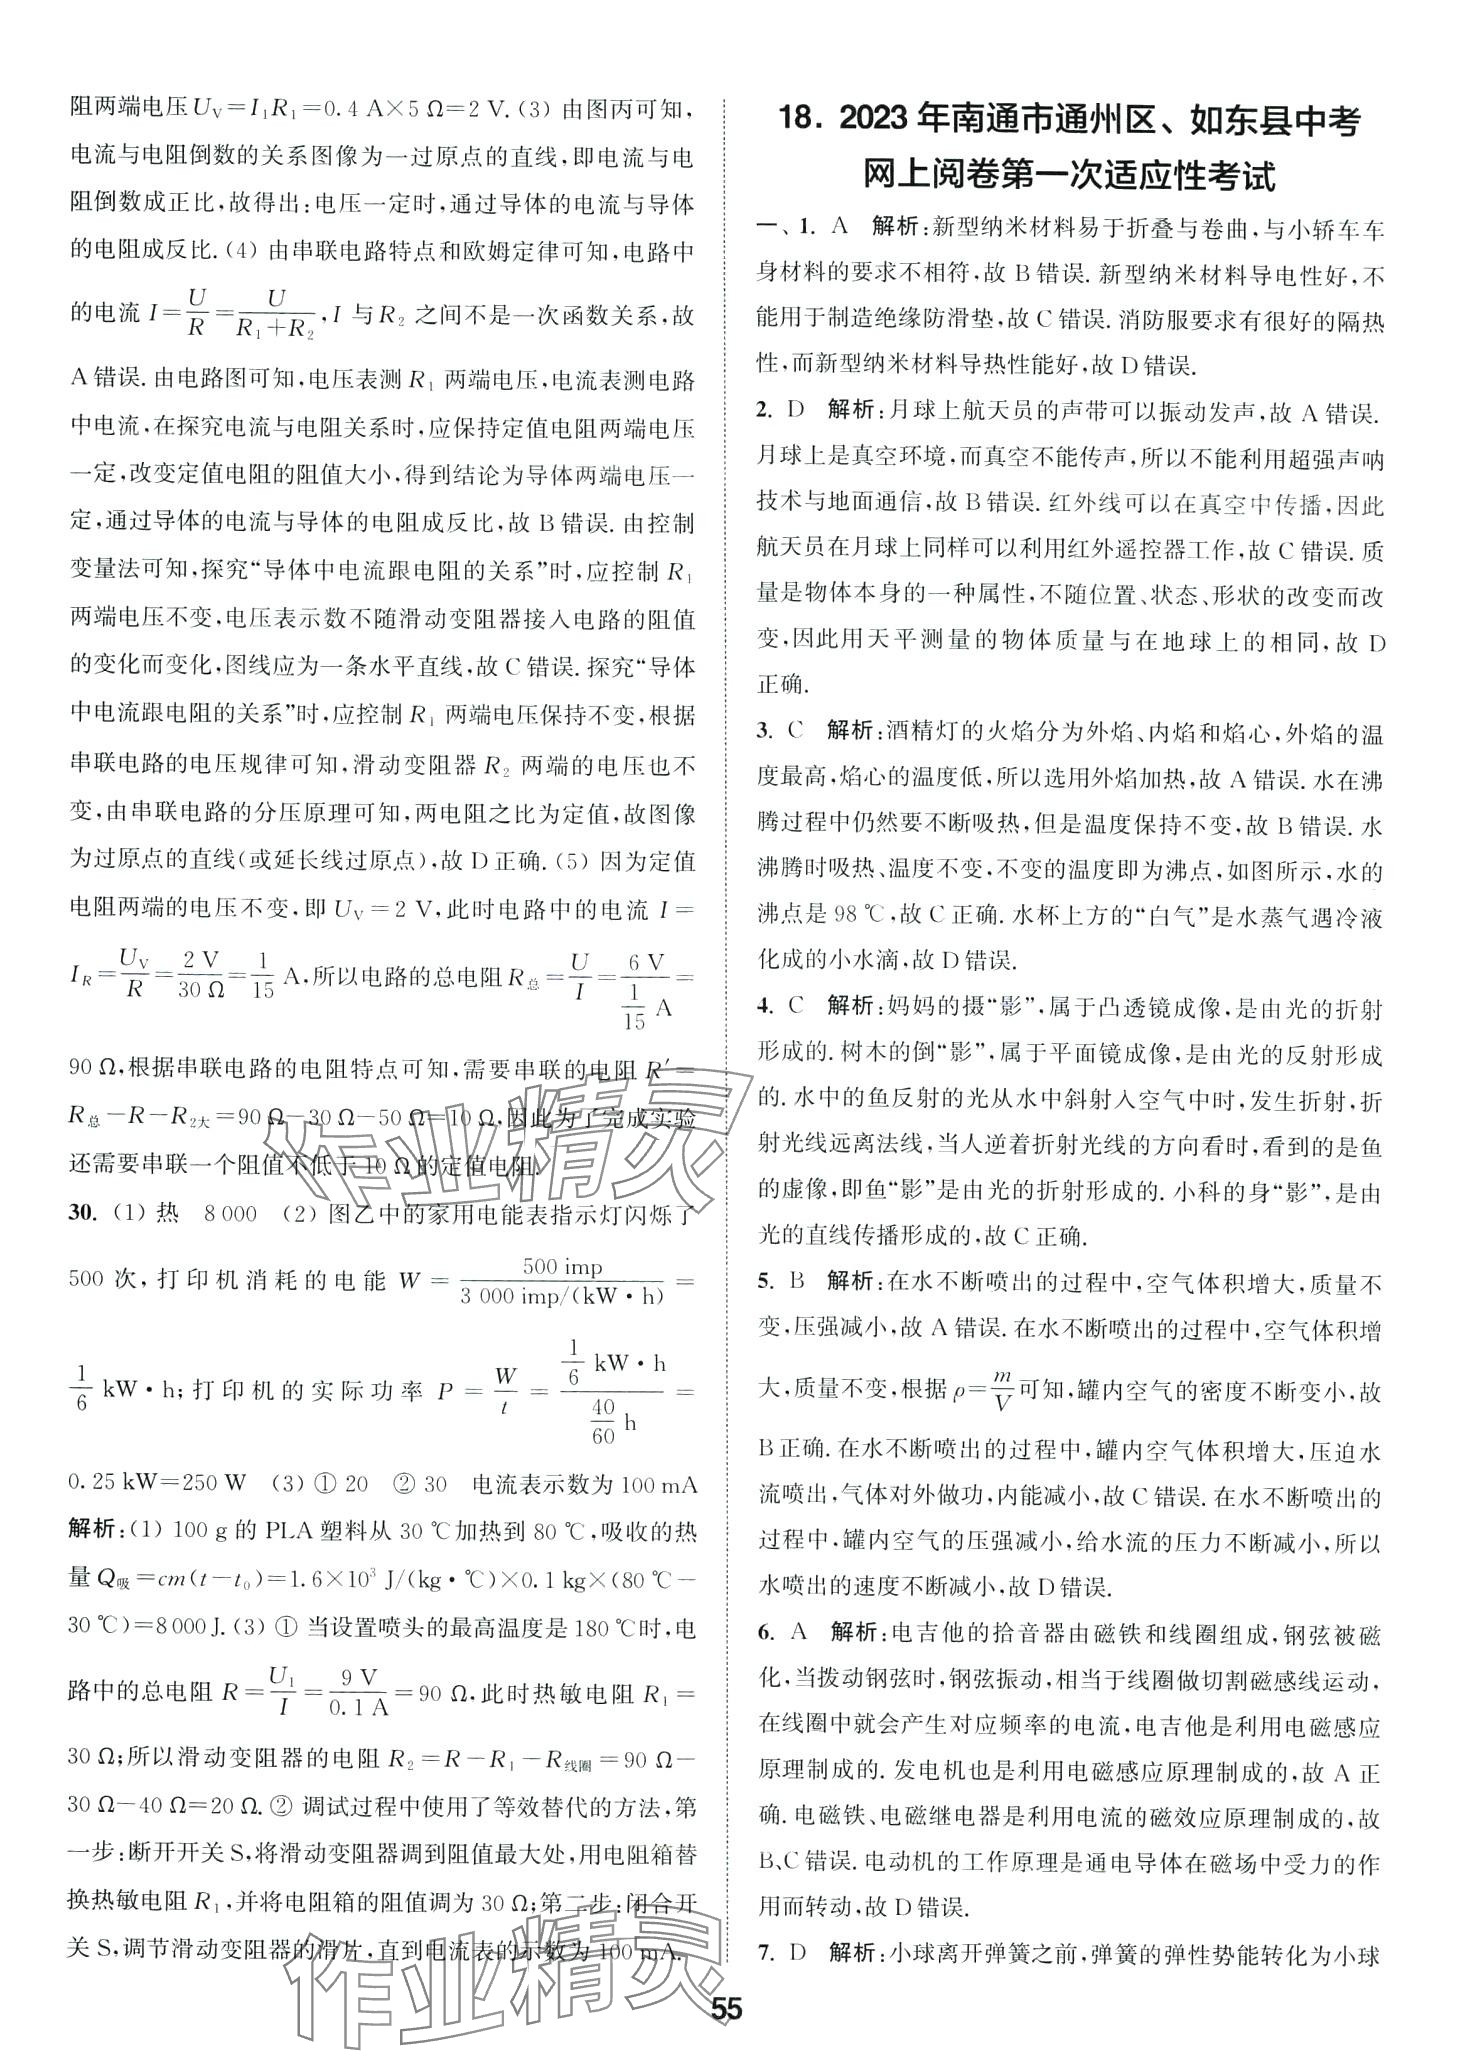 阻两端电压U_V=I₁R₁=0.4 A×5 Ω=2 V.(3) 由图丙可知,
电流与电阻倒数的关系图像为一过原点的直线,即电流与电
阻倒数成正比,故得出:电压一定时,通过导体的电流与导体
的电阻成反比.(4) 由串联电路特点和欧姆定律可知,电路中
的电流 I=U/R=U/(R₁+R₂),I 与R₂ 之间不是一次函数关系,故
A错误.由电路图可知,电压表测R₁ 两端电压,电流表测电路
中电流,在探究电流与电阻关系时,应保持定值电阻两端电压
一定,改变定值电阻的阻值大小,得到结论为导体两端电压一
定,通过导体的电流与导体的电阻成反比,故B错误.由控制
变量法可知,探究“导体中电流跟电阻的关系”时,应控制R₁
两端电压不变,电压表示数不随滑动变阻器接入电路的阻值
的变化而变化,图线应为一条水平直线,故C错误.探究“导体
中电流跟电阻的关系”时,应控制R₁ 两端电压保持不变,根据
串联电路的电压规律可知,滑动变阻器R₂ 两端的电压也不
变,由串联电路的分压原理可知,两电阻之比为定值,故图像
为过原点的直线(或延长线过原点),故D正确.(5) 因为定值
电阻两端的电压不变,即U_V=2 V,此时电路中的电流 I=
I_R=U_V/R=2 V/30 Ω=1/15 A,所以电路的总电阻R总=U/I=6 V/(1/15 A)=
90 Ω,根据串联电路的电阻特点可知,需要串联的电阻 R′=
R总-R-R₂大=90 Ω-30 Ω-50 Ω=10 Ω,因此为了完成实验
还需要串联一个阻值不低于10 Ω的定值电阻.
30. (1) 热 8 000 (2) 图乙中的家用电能表指示灯闪烁了
500 次,打印机消耗的电能 W=500 imp/(3 000 imp/(kW·h))=
1/6 kW·h;打印机的实际功率 P=W/t=(1/6 kW·h)/(40/60 h)=
0.25 kW=250 W (3) ① 20 ② 30 电流表示数为100 mA
解析:(1) 100 g 的 PLA 塑料从 30 ℃加热到 80 ℃,吸收的热
量Q吸=cm(t-t₀)=1.6×10³ J/(kg·℃)×0.1 kg×(80 ℃-
30 ℃)=8 000 J.(3) ① 当设置喷头的最高温度是180 ℃时,电
路中的总电阻 R=U₁/I=9 V/0.1 A=90 Ω,此时热敏电阻 R₁=
30 Ω;所以滑动变阻器的电阻 R₂=R-R₁-R线圈=90 Ω-
30 Ω-40 Ω=20 Ω.② 调试过程中使用了等效替代的方法,第
一步:断开开关S,将滑动变阻器调到阻值最大处,用电阻箱替
换热敏电阻R₁,并将电阻箱的阻值调为30 Ω;第二步:闭合开
关S,调节滑动变阻器的滑片,直到电流表的示数为100 mA.
18. 2023 年南通市通州区、如东县中考
网上阅卷第一次适应性考试
一、1. A 解析:新型纳米材料易于折叠与卷曲,与小轿车车
身材料的要求不相符,故B错误.新型纳米材料导电性好,不
能用于制造绝缘防滑垫,故C错误.消防服要求有很好的隔热
性,而新型纳米材料导热性能好,故D错误.
2. D 解析:月球上航天员的声带可以振动发声,故A错误.
月球上是真空环境,而真空不能传声,所以不能利用超强声呐
技术与地面通信,故B错误.红外线可以在真空中传播,因此
航天员在月球上同样可以利用红外遥控器工作,故C错误.质
量是物体本身的一种属性,不随位置、状态、形状的改变而改
变,因此用天平测量的物体质量与在地球上的相同,故D
正确.
3. C 解析:酒精灯的火焰分为外焰、内焰和焰心,外焰的温
度最高,焰心的温度低,所以选用外焰加热,故A错误.水在沸
腾过程中仍然要不断吸热,但是温度保持不变,故B错误.水
沸腾时吸热、温度不变,不变的温度即为沸点,如图所示,水的
沸点是98 ℃,故C正确.水杯上方的“白气”是水蒸气遇冷液
化成的小水滴,故D错误.
4. C 解析:妈妈的摄“影”,属于凸透镜成像,是由光的折射
形成的.树木的倒“影”,属于平面镜成像,是由光的反射形成
的.水中的鱼反射的光从水中斜射入空气中时,发生折射,折
射光线远离法线,当人逆着折射光线的方向看时,看到的是鱼
的虚像,即鱼“影”是由光的折射形成的.小科的身“影”,是由
光的直线传播形成的,故C正确.
5. B 解析:在水不断喷出的过程中,空气体积增大,质量不
变,压强减小,故A错误.在水不断喷出的过程中,空气体积增
大,质量不变,根据 ρ=m/V可知,罐内空气的密度不断变小,故
B正确.在水不断喷出的过程中,罐内空气体积增大,压迫水
流喷出,气体对外做功,内能减小,故C错误.在水不断喷出的
过程中,罐内空气的压强减小,给水流的压力不断减小,所以
水喷出的速度不断减小,故D错误.
6. A 解析:电吉他的拾音器由磁铁和线圈组成,钢弦被磁
化,当拨动钢弦时,钢弦振动,相当于线圈做切割磁感线运动,
在线圈中就会产生对应频率的电流,电吉他是利用电磁感应
原理制成的.发电机也是利用电磁感应原理制成的,故A正
确.电磁铁、电磁继电器是利用电流的磁效应原理制成的,故
B、C错误.电动机的工作原理是通电导体在磁场中受力的作
用而转动,故D错误.
7. D 解析:小球离开弹簧之前,弹簧的弹性势能转化为小球
55
作业精灵
作业精灵